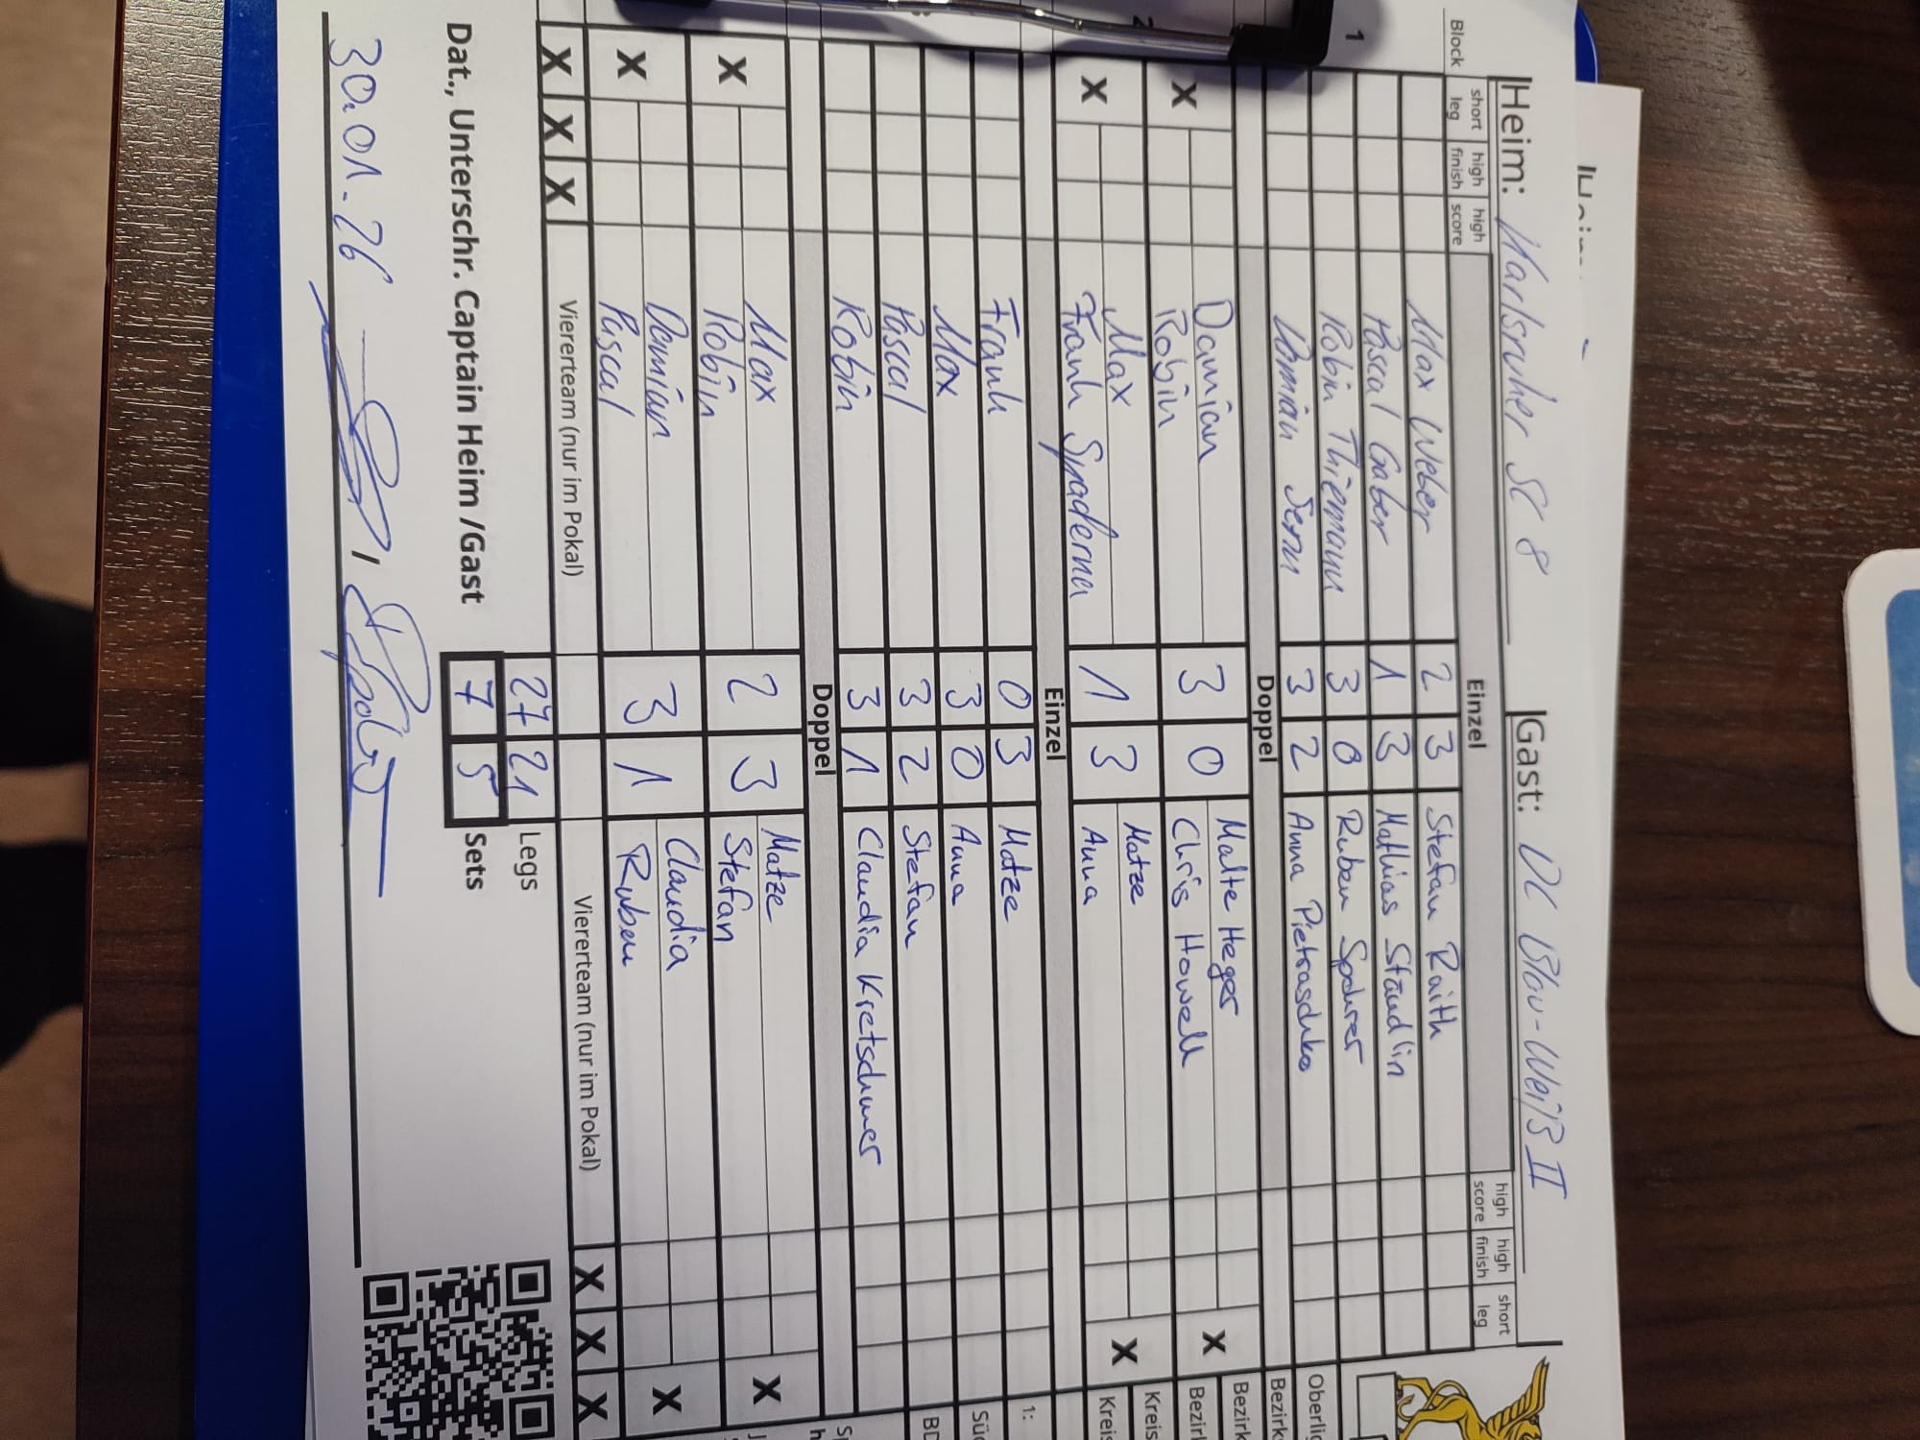 Heim: Karlsruher SC 8 Gast: DC Blau-Weiß II
Block short leg high finish high score Einzel high score high finish short leg
1
Max Weber 2 3 Stefan Raith
Pascal Gaber 1 3 Mathias Staudlin
Robin Thiemann 3 0 Ruben Spohrer
Damian Sern 3 2 Anna Pietraschko
Doppel
2
X Damian 3 0 Malte Heger X
Robin Chris Howell
X Max 1 3 Matze X
Frank Spaderner Anna
Einzel
Frank 0 3 Matze
Max 3 0 Anna
Pascal 3 2 Stefan
Robin 3 1 Claudia Kretschmer
Doppel
X Max 2 3 Matze X
Robin Stefan
X Damian 3 1 Claudia X
Pascal Ruben
X X X Viererteam (nur im Pokal) Viererteam (nur im Pokal) X X X
27 21 Legs
Dat., Unterschr. Captain Heim /Gast 7 5 Sets
30.01.26
Oberlig
Bezirks
Bezirk
Bezirk
Kreis
Kreis
1:
Süd
BD